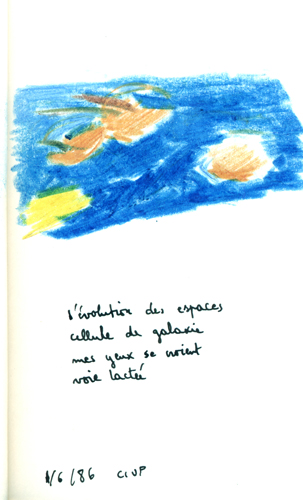 l'évolution des espaces
cellule de galaxie
mes yeux se voient
voie lactée
1/6/86 CIUP